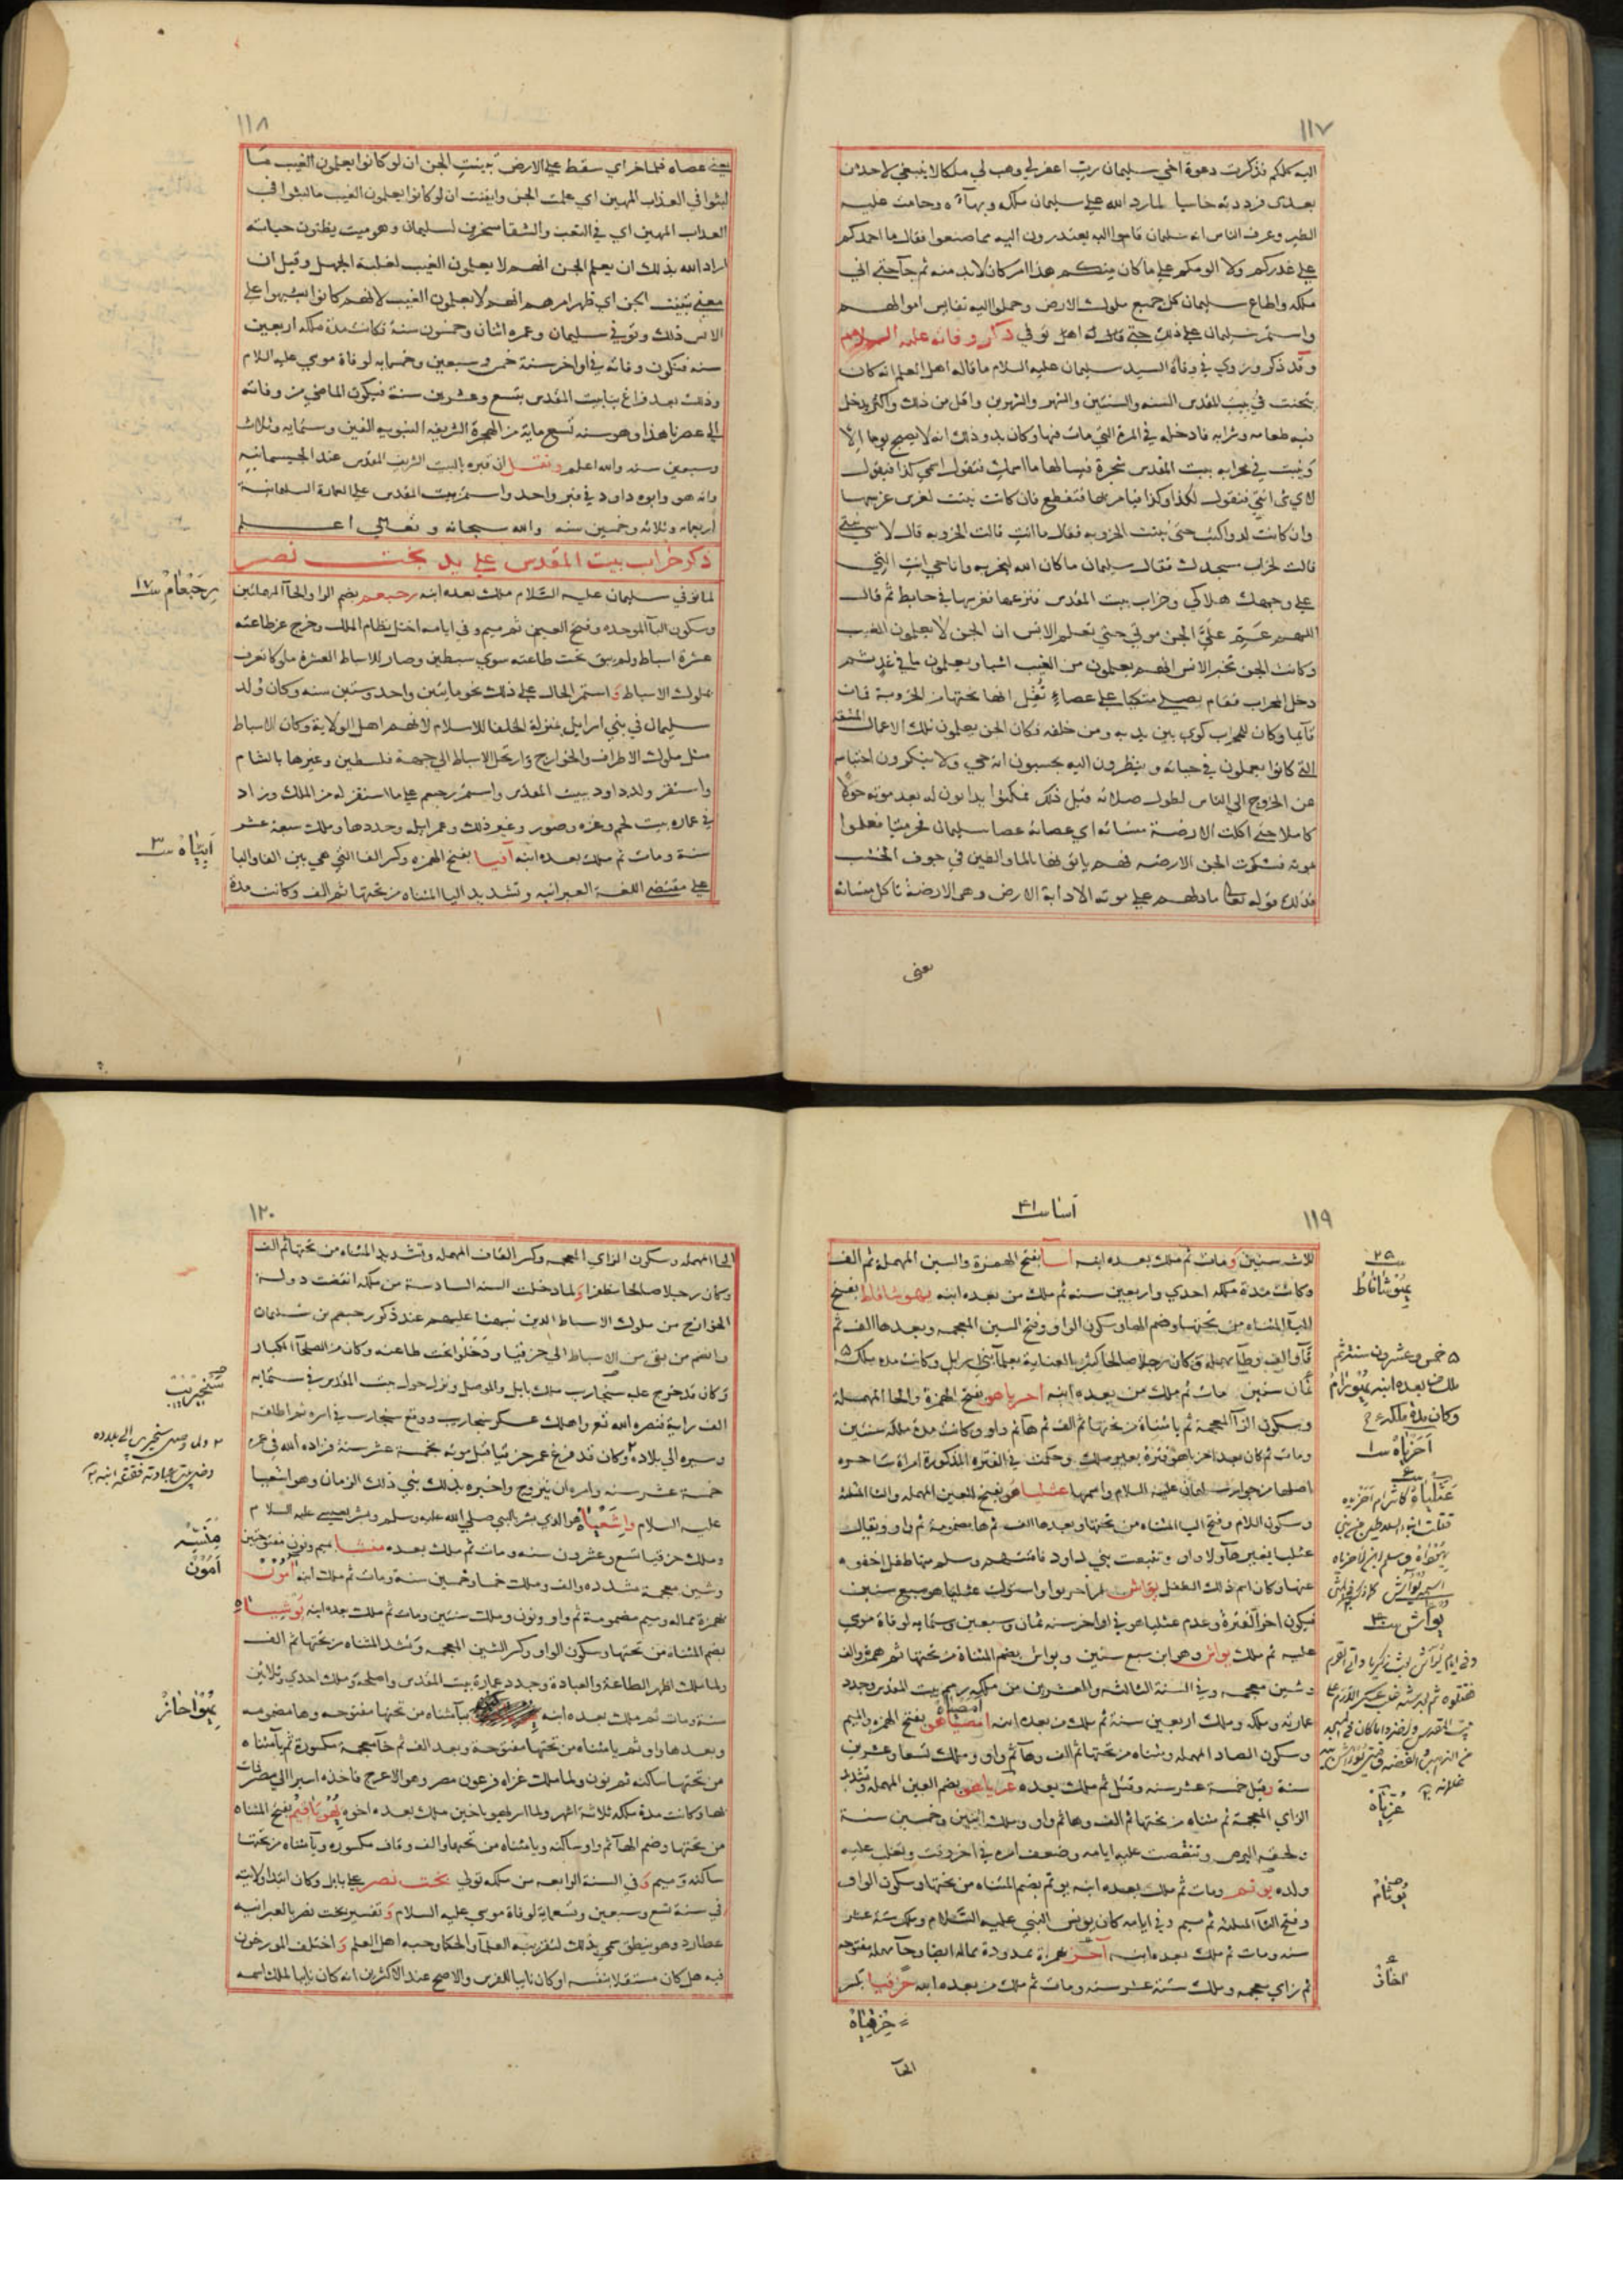 ١١٧
اليه كلكم فذكرت دعوة اخي سليمان رب اغفر لي وهب لي ملكا لا ينبغي لاحد من
بعدي فرددته خاسيا فلما رد الله على سليمان ملكه وبهاه وحامت عليه
الطير وعرف الناس انه سليمان قاموا اليه يعتذرون اليه مما صنعوا فقال ما احمدكم
على عذركم ولا الومكم على ما كان منكم هذا امر كان لا بد منه ثم جا حتى اتى
ملكه واطاع سليمان كل جميع ملوك الارض وحملوا اليه نفايس اموالهم
واستمر سليمان على ذلك حتى توفي ذكر وفاته عليه السلام
وقد ذكر وروي في وفاة السيد سليمان عليه السلام ما قاله اهل العلم انه كان
يتحنث في بيت المقدس السنه والسنتين والشهر والشهرين واقل من ذلك واكثر يدخل
فيه طعامه وشرابه فادخله في المرة التي مات فيها وكان بدو ذلك انه لا يصبح يوما الا
وينبت في محرابه ببيت المقدس شجرة فيسالها ما اسمك فتقول اسمي كذا فيقول
لاي شي انتي فتقول لكذا وكذا فيامر بها فتقطع فان كانت نبتت لغرس غرسها
وان كانت لدوا كتب حتى نبتت الخروبه فقال ما انت قالت الخروبه قال لاي شي نبتي
قالت لخراب مسجدك فقال سليمان ما كان الله ليخربه وانا حي انت التي
على وجهك هلاكي وخراب بيت المقدس فنزعها وغرسها في حايط ثم قال
اللهم عم على الجن موتي حتى تعلم الانس ان الجن لا يعلمون الغيب
وكانت الجن تخبر الانس انهم يعلمون من الغيب اشيا ويعلمون ما في غد ثم
دخل المحراب فقام يصلي متكيا على عصاه قيل انها نحتها من الخروبة فمات
قايما وكان للمحراب كوي بين يديه ومن خلفه فكان الجن يعملون تلك الاعمال الشقه
التي كانوا يعملون في حياته وينظرون اليه يحسبون انه حي ولا ينكرون احتباسه
عن الخروج الى الناس لطول صلاته قبل ذلك فمكثوا يدابون له بعد موته حولا
كاملا حتى اكلت الارضة منساته اي عصاته عصا سليمان فخر ميتا فعلموا
موته فشكرت الجن الارضه فهم ياتونها بالما والطين في جوف الخشب
فذلك قوله تعالى ما دلهم على موته الا دابة الارض وهي الارضة تاكل منساته
يعني
١١٨
يعني عصاه فلما خر اي سقط على الارض تبينت الجن ان لو كانوا يعلمون الغيب ما
لبثوا في العذاب المهين اي علمت الجن وايقنت ان لو كانوا يعلمون الغيب ما لبثوا في
العذاب المهين اي في التعب والشقا مسخرين لسليمان وهو ميت يظنون حياته
اراد الله بذلك ان يعلم الجن انهم لا يعلمون الغيب لغلبة الجهل وقيل ان
معنى تبينت الجن اي ظهر امرهم انهم لا يعلمون الغيب لانهم كانوا يشبهوا على
الانس ذلك وتوفي سليمان وعمره اثنان وخمسون سنة فكانت مدة ملكه اربعين
سنه فتكون وفاته في اواخر سنة خمس وسبعين وخمسمايه لوفاة موسي عليه السلام
وذلك بعد فراغ بنا بيت المقدس بتسع وعشرين سنة فيكون الماضي من وفاته
الى عصرنا هذا وهو سنه تسع ماية من الهجرة الشريفه النبويه الفين وستمايه وثلاث
وسبعين سنه والله اعلم ونقل ان قبره بالبيت الشريف المقدس عند الجيسمانيه
وانه هو وابوه داود في قبر واحد واستمر بيت المقدس على العمارة السليمانية
اربعمايه وثلاثه وخمسين سنه والله سبحانه وتعالى اعلم
ذكر خراب بيت المقدس على يد بخت نصر
لما توفي سليمان عليه السلام ملك بعده ابنه رحبعم بضم الرا والحا المهملتين
وسكون البا الموحده وفتح العين ثم ميم وفي ايامه اختل نظام الملك وخرج عن طاعته
عشرة اسباط ولم يبق تحت طاعته سوي سبطين وصار للاسباط العشرة ملوكا تعرف
بملوك الاسباط واستمر الحال على ذلك نحو مايتين واحد وستين سنه وكان ولد
سليمان في بني اسرايل بمنزلة الخلفا للاسلام لانهم اهل الولاية وكان الاسباط
مثل ملوك الاطراف والخوارج وارتحل الاسباط الى جهة فلسطين وغيرها بالشام
واستقر ولد داود ببيت المقدس واستمر رحبعم على ما استقر له من الملك وزاد
في عماره بيت لحم وغزه وصور وغير ذلك وعمر ايله وجددها وملك سبعة عشر
سنة ومات ثم ملك بعده ابنه افيا بفتح الهمزه وكسر الفا التي هي بين الفا والبا
على مقتضى اللغة العبرانيه وتشديد اليا المثناه من تحتها ثم الف وكانت مدة
رحبعام ١٧
ابياه ٣
١١٩
آسا ٤١
ثلاث سنين ومات ثم ملك بعده ابنه اسا بفتح الهمزة والسين المهملة ثم الف
وكانت مدة ملكه احدي واربعين سنه ثم ملك من بعده ابنه يهوشافاط بفتح
اليا المثناه من تحتها وضم الها وسكون الواو وفتح الشين المعجمه وبعدها الف ثم
فا والف وطا مهملة وكان رجلا صالحا كثير العناية بعلما بني اسرايل وكانت مدة ملكه
ثمان سنين مات ثم ملك من بعده ابنه احزياهو بفتح الهمزة والحا المهملة
وسكون الزا المعجمة ثم يا مثناة من تحتها ثم الف ثم ها ثم واو وكانت مدة ملكه سنتين
ومات ثم كان بعد احزياهو فترة بغير ملك وحكمت في الفتره المذكورة امراة ساحره
اصلها من جواري سليمان عليه السلام واسمها عثلياهو بفتح العين المهمله والثا المثلثة
وسكون اللام وفتح اليا المثناه من تحتها وبعدها الف ثم ها مضمومة ثم واو ويقال
عثليا بغير ها ولا واو وتتبعت بني داود فافنتهم وسلم منها طفل اخفوه
عنها وكان اسم ذلك الطفل يواش بن احزيو واستولت عثلياهو سبع سنين
فيكون اخر الفترة وعدم عثلياهو في اواخر سنه ثمان وسبعين وستمايه لوفاة موسي
عليه ثم ملك يواش وهو ابن سبع سنين ويواش بضم المثناة من تحتها ثم همزة والف
وشين معجمه وفي السنة الثالثه والعشرين من ملكه رمم بيت المقدس وجدد
عمارته وملكه وملك اربعين سنة ثم ملك من بعده ابنه امصياهو بفتح الهمزه والميم
وسكون الصاد المهمله ومثناه من تحتها ثم الف وها ثم واو وملك تسعا وعشرين
سنة وقيل خمسة عشر سنه وقتل ثم ملك بعده عزياهو بضم العين المهمله وتشديد
الزاي المعجمة ثم مثناه من تحتها ثم الف وها ثم واو وملك اثنين وخمسين سنة
ولحقه البرص وتنغصت عليه ايامه وضعف امره في اخر وقت وتغلب عليه
ولده يوثم ومات ثم ملك بعده ابنه يوثم بضم المثناه من تحتها وسكون الواو
وفتح الثا المثلثه ثم ميم وفي ايامه كان يونس النبي عليه السلام وملك ستة عشر
سنه ومات ثم ملك بعده ابنه آحز بهمزة ممدودة مماله ايضا وحا مهمله مفتوحه
ثم زاي معجمه وملك ستة عشر سنه ومات ثم ملك من بعده ابنه حزقيا بكسر
حزقياه
الحا
٢٥
يهوشافاط
٥ خمس وعشرون سنة ثم
ملك بعده ابنه يهورام
وكان مدة ملكه ٨
احزياه ١
يواش ٤٠
عزياه
يوثام
احاز
١٢٠
الحا المهمله وسكون الزاي المعجمه وكسر القاف المهمله وتشديد المثناه من تحتها ثم الف
وكان رجلا صالحا مظفرا ولما دخلت السنه السادسة من ملكه انقضت دولة
الخوارج من ملوك الاسباط الذين نبهنا عليهم عند ذكر رحبعم بن سليمان
وانضم من بقي من الاسباط الى حزقيا ودخلوا تحت طاعته وكان من الصلحا الكبار
وكان قد خرج عليه سنحارب ملك بابل والموصل ونزل حول بيت المقدس في ستمايه
الف راية فنصره الله تع واهلك عسكر سنحارب ووقع سنحارب في اسره ثم اطلقه
وسيره الى بلاده وكان قد فرغ عمر حزقيا قبل موته بخمسة عشر سنة فزاده الله في عمره
خمسة عشر سنه وامره ان يتزوج واخبره بذلك نبي ذلك الزمان وهو اشعيا
عليه السلام واشعيا هو الذي بشر بالنبي صلى الله عليه وسلم وبشر بعيسى عليه السلام
وملك حزقيا تسع وعشرون سنه ومات ثم ملك بعده منشا بميم ونون مفتوحتين
وشين معجمة مشدده والف وملك خمسا وخمسين سنة ومات ثم ملك ابنه امون
بهمزة مماله وميم مضمومة ثم واو ونون وملك سنتين ومات ثم ملك بعده ابنه يوشياه
بضم المثناه من تحتها وسكون الواو وكسر الشين المعجمه وتشديد المثناه من تحتها ثم الف
ولما ملك اظهر الطاعة والعبادة وجدد عمارة بيت المقدس واصلحه وملك احدي وثلاثين
سنة ومات ثم ملك بعده ابنه بيا مثناه من تحتها مفتوحه وها مضمومه
وبعدها واو ثم يا مثناه من تحتها مفتوحة وبعد الف ثم خا معجمة مكسورة ثم يا مثناه
من تحتها ساكنه ثم نون ولما ملك غزاه فرعون مصر وهو الاعرج فاخذه اسيرا الى مصر فمات
بها وكانت مدة ملكه ثلاثة اشهر ولما اسر يهوياخين ملك بعده اخوه يهوياقيم بفتح المثناه
من تحتها وضم الها ثم واو ساكنه ويا مثناه من تحتها والف وقاف مكسوره ويا مثناه من تحتها
ساكنه وميم وفي السنة الرابعه من ملكه تولى بخت نصر على بابل وكان ابتدا ولايته
في سنة تسع وسبعين وتسعماية لوفاة موسي عليه السلام وتفسير بخت نصر بالعبرانيه
عطارد وهو ينطق سمي بذلك لتقريبه العلما والحكما وحبه اهل العلم واختلف المورخون
فيه هل كان مستقلا بنفسه او كان نايبا للفرس والاصح عند الاكثرين انه كان نايبا لملك اسمه
سنحيريب
منسه
امون
يهواحاز